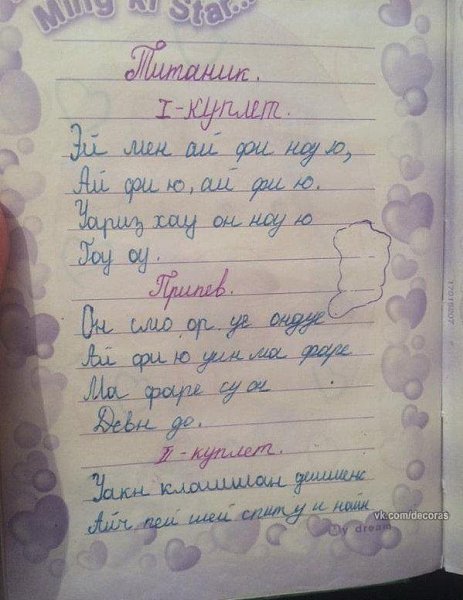 Ming ki Star...
Титаник.
I-куплет.
Эй мен ай фи ноу ю,
Ай фи ю, ай фи ю.
Уариз хау он ноу ю
Гоу оу.
Припев.
Он смо ор уе ондуе
Ай фи ю уин ма фаре
Ма фаре су ои
Девн до.
II-куплет.
Уакн клошиан дешиенс
Айч пей шей спиту и найн
vk.com/decoras
My dream